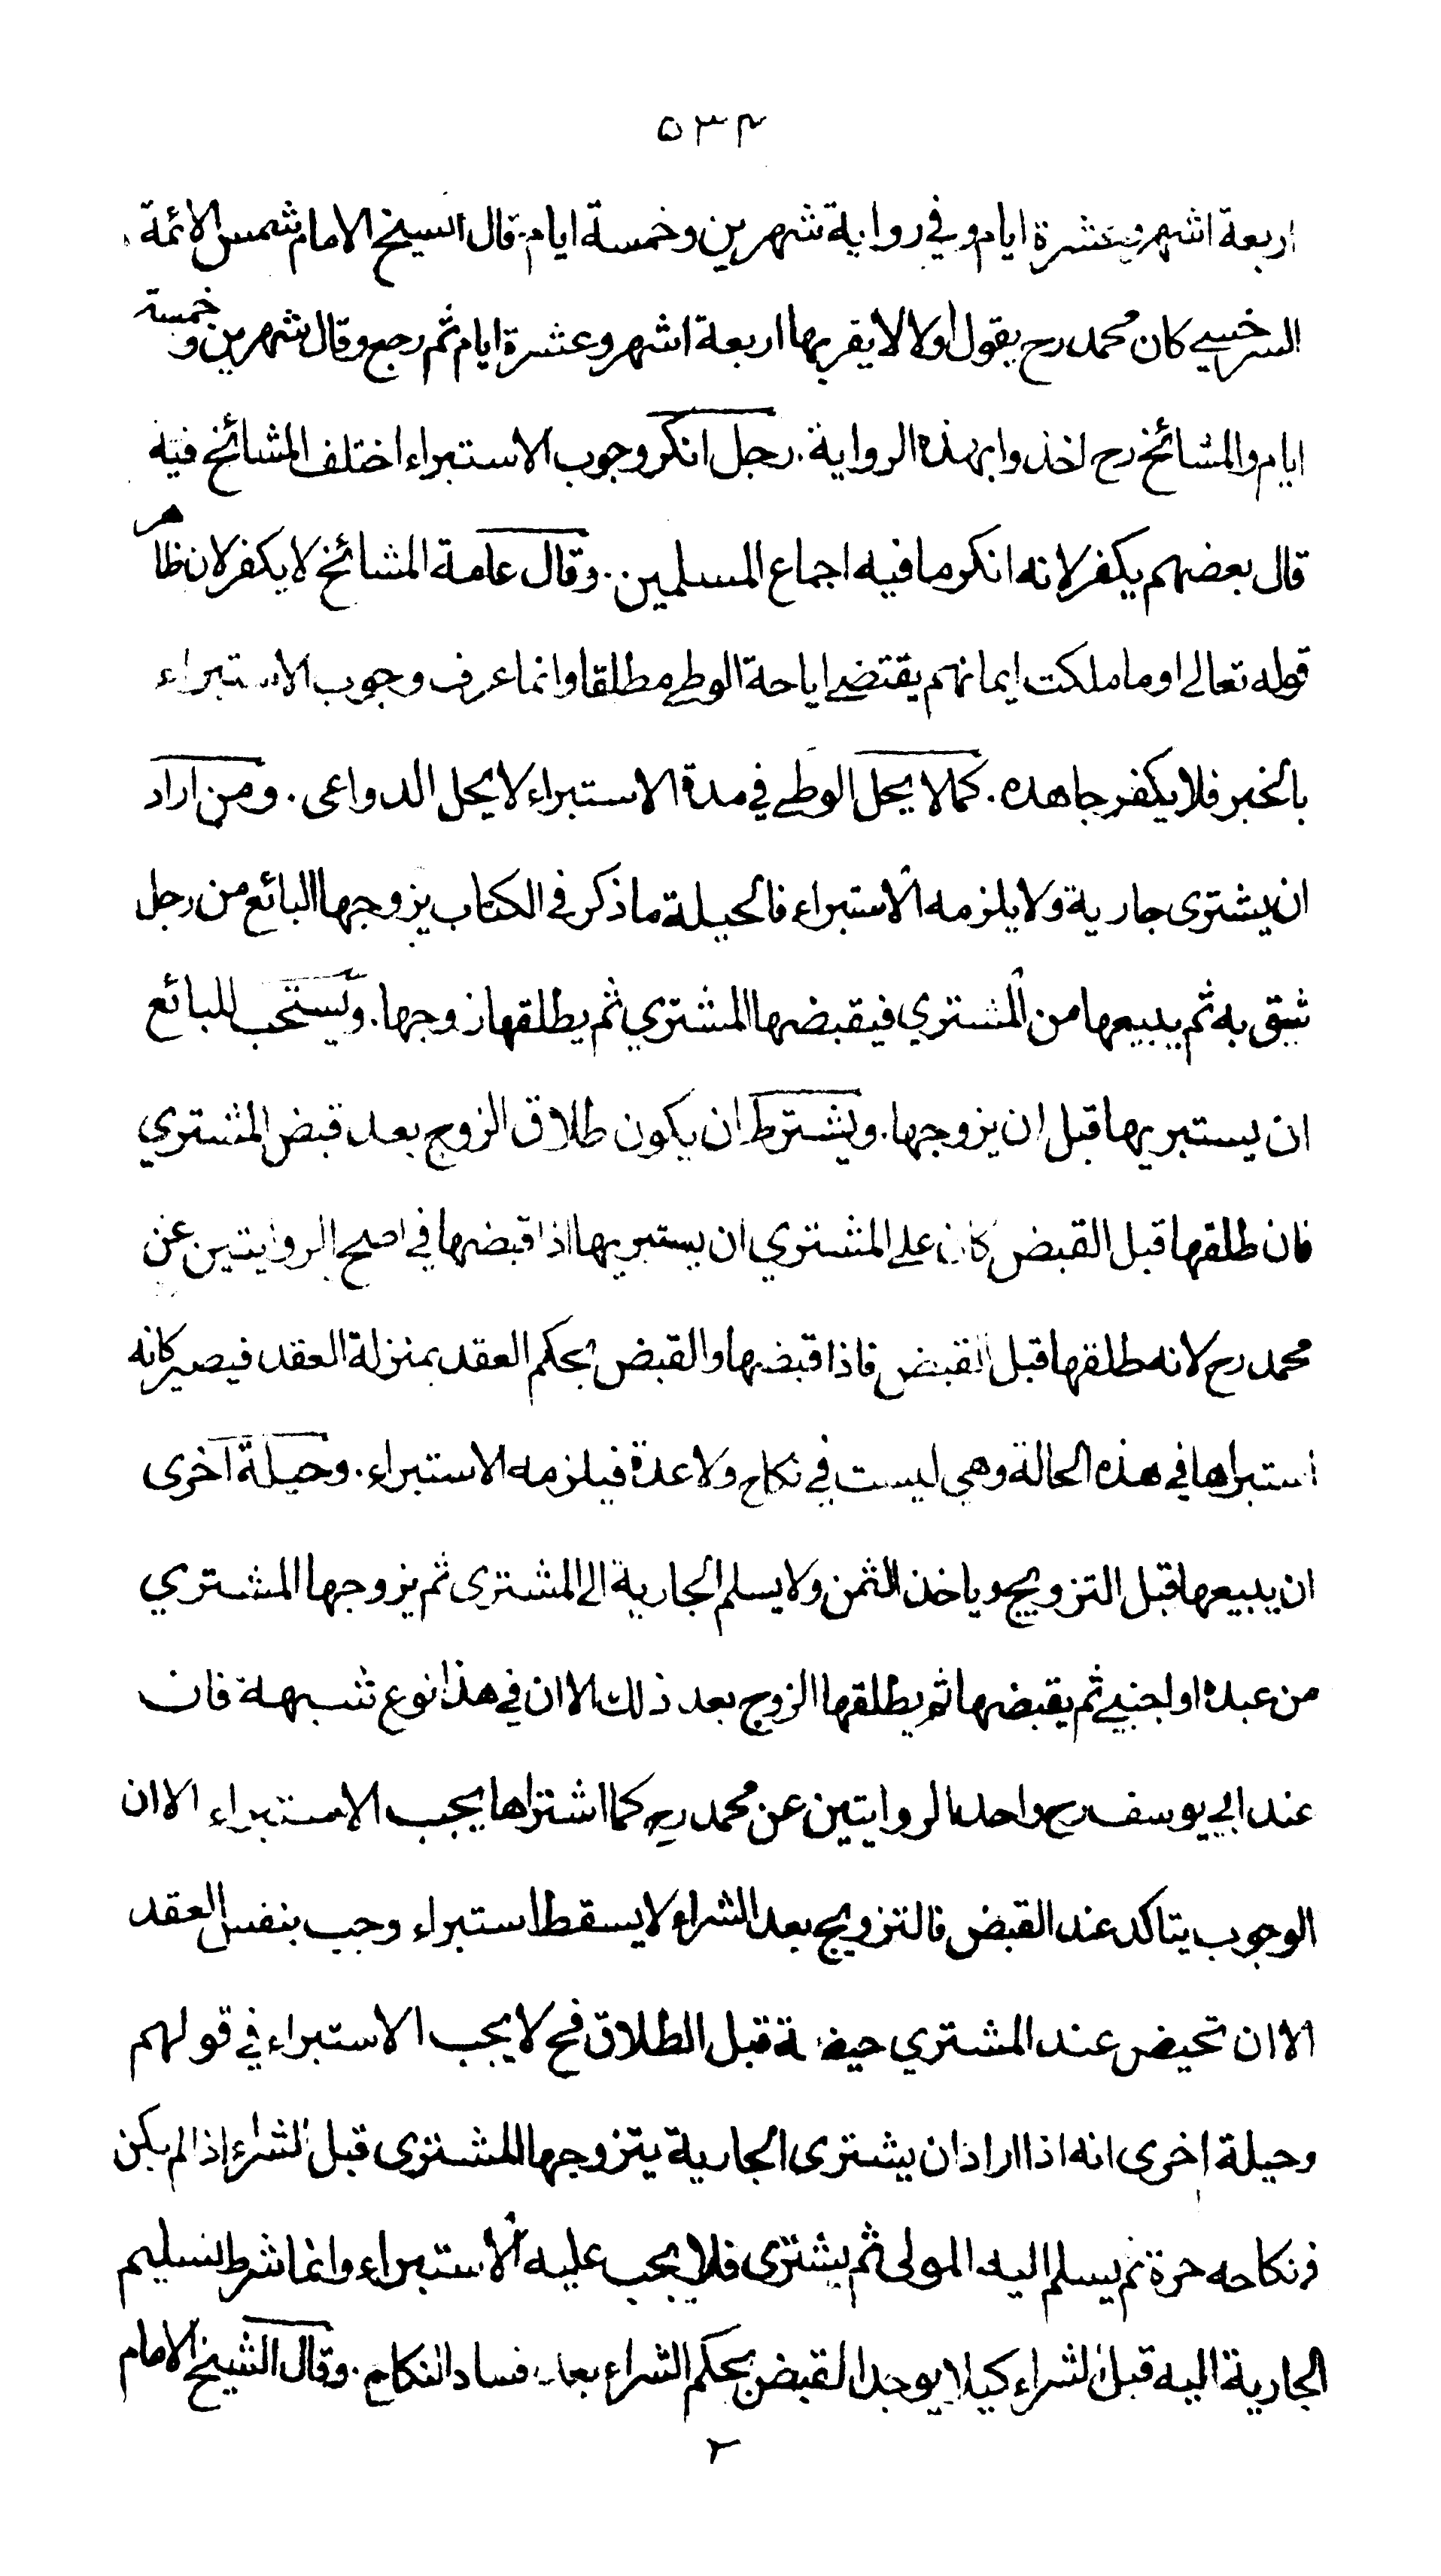 ٥٣٤
اربعة اشهر وعشرة ايام وفي رواية شهرين وخمسة ايام. قال الشيخ الامام شمس الائمة
السرخسي كان محمد رح يقول اولا لا يقربها اربعة اشهر وعشرة ايام ثم رجع وقال شهرين وخمسة
ايام والمشائخ رح اخذوا بهذه الرواية. رجل انكر وجوب الاستبراء اختلف المشائخ فيه
قال بعضهم يكفر لانه انكر ما فيه اجماع المسلمين.. وقال عامة المشائخ لا يكفر لان ظاهر
قوله تعالى او ما ملكت ايمانهم يقتضي اباحة الوطي مطلقا وانما عرف وجوب الاستبراء
بالخبر فلا يكفر جاهده. كما لا يحل الوطي في مدة الاستبراء لا يحل الدواعى. ومن اراد
ان يشترى جارية ولا يلزمه الاستبراء فالحيلة ما ذكر في الكتاب يزوجها البائع من رجل
يثق به ثم يبيعها من المشتري فيقبضها المشتري ثم يطلقها زوجها. ويستحب للبائع
ان يستبريها قبل ان يزوجها. ويشترط ان يكون طلاق الزوج بعد قبض المشتري
فان طلقها قبل القبض كان على المشتري ان يستبريها اذا قبضها في اصح الروايتين عن
محمد رح لانه طلقها قبل القبض فاذا قبضها والقبض بحكم العقد بمنزلة العقد فيصير كانه
استبراها في هذه الحالة وهي ليست في نكاح ولا عدة فيلزمه الاستبراء. وحيلة اخرى
ان يبيعها قبل التزويج وياخذ الثمن ولا يسلم الجارية الى المشترى ثم يزوجها المشتري
من عبده او اجنبي ثم يقبضها ثم يطلقها الزوج بعد ذلك الا ان في هذا نوع شبهة فان
عند ابي يوسف رح واحدى الروايتين عن محمد رح كما اشتراها يجب الاستبراء الا ان
الوجوب يتاكد عند القبض فالتزويج بعد الشراء لا يسقط استبراء وجب بنفس العقد
الا ان تحيض عند المشتري حيضة قبل الطلاق فح لا يجب الاستبراء في قولهم
وحيلة اخرى انه اذا اراد ان يشترى الجارية يتزوجها المشترى قبل الشراء اذا لم يكن
في نكاحه حرة ثم يسلم اليه المولى ثم يشترى فلا يجب عليه الاستبراء وانما شرط تسليم
الجارية اليه قبل الشراء كيلا يوجد القبض بحكم الشراء بعد فساد النكاح. وقال الشيخ الامام
٢